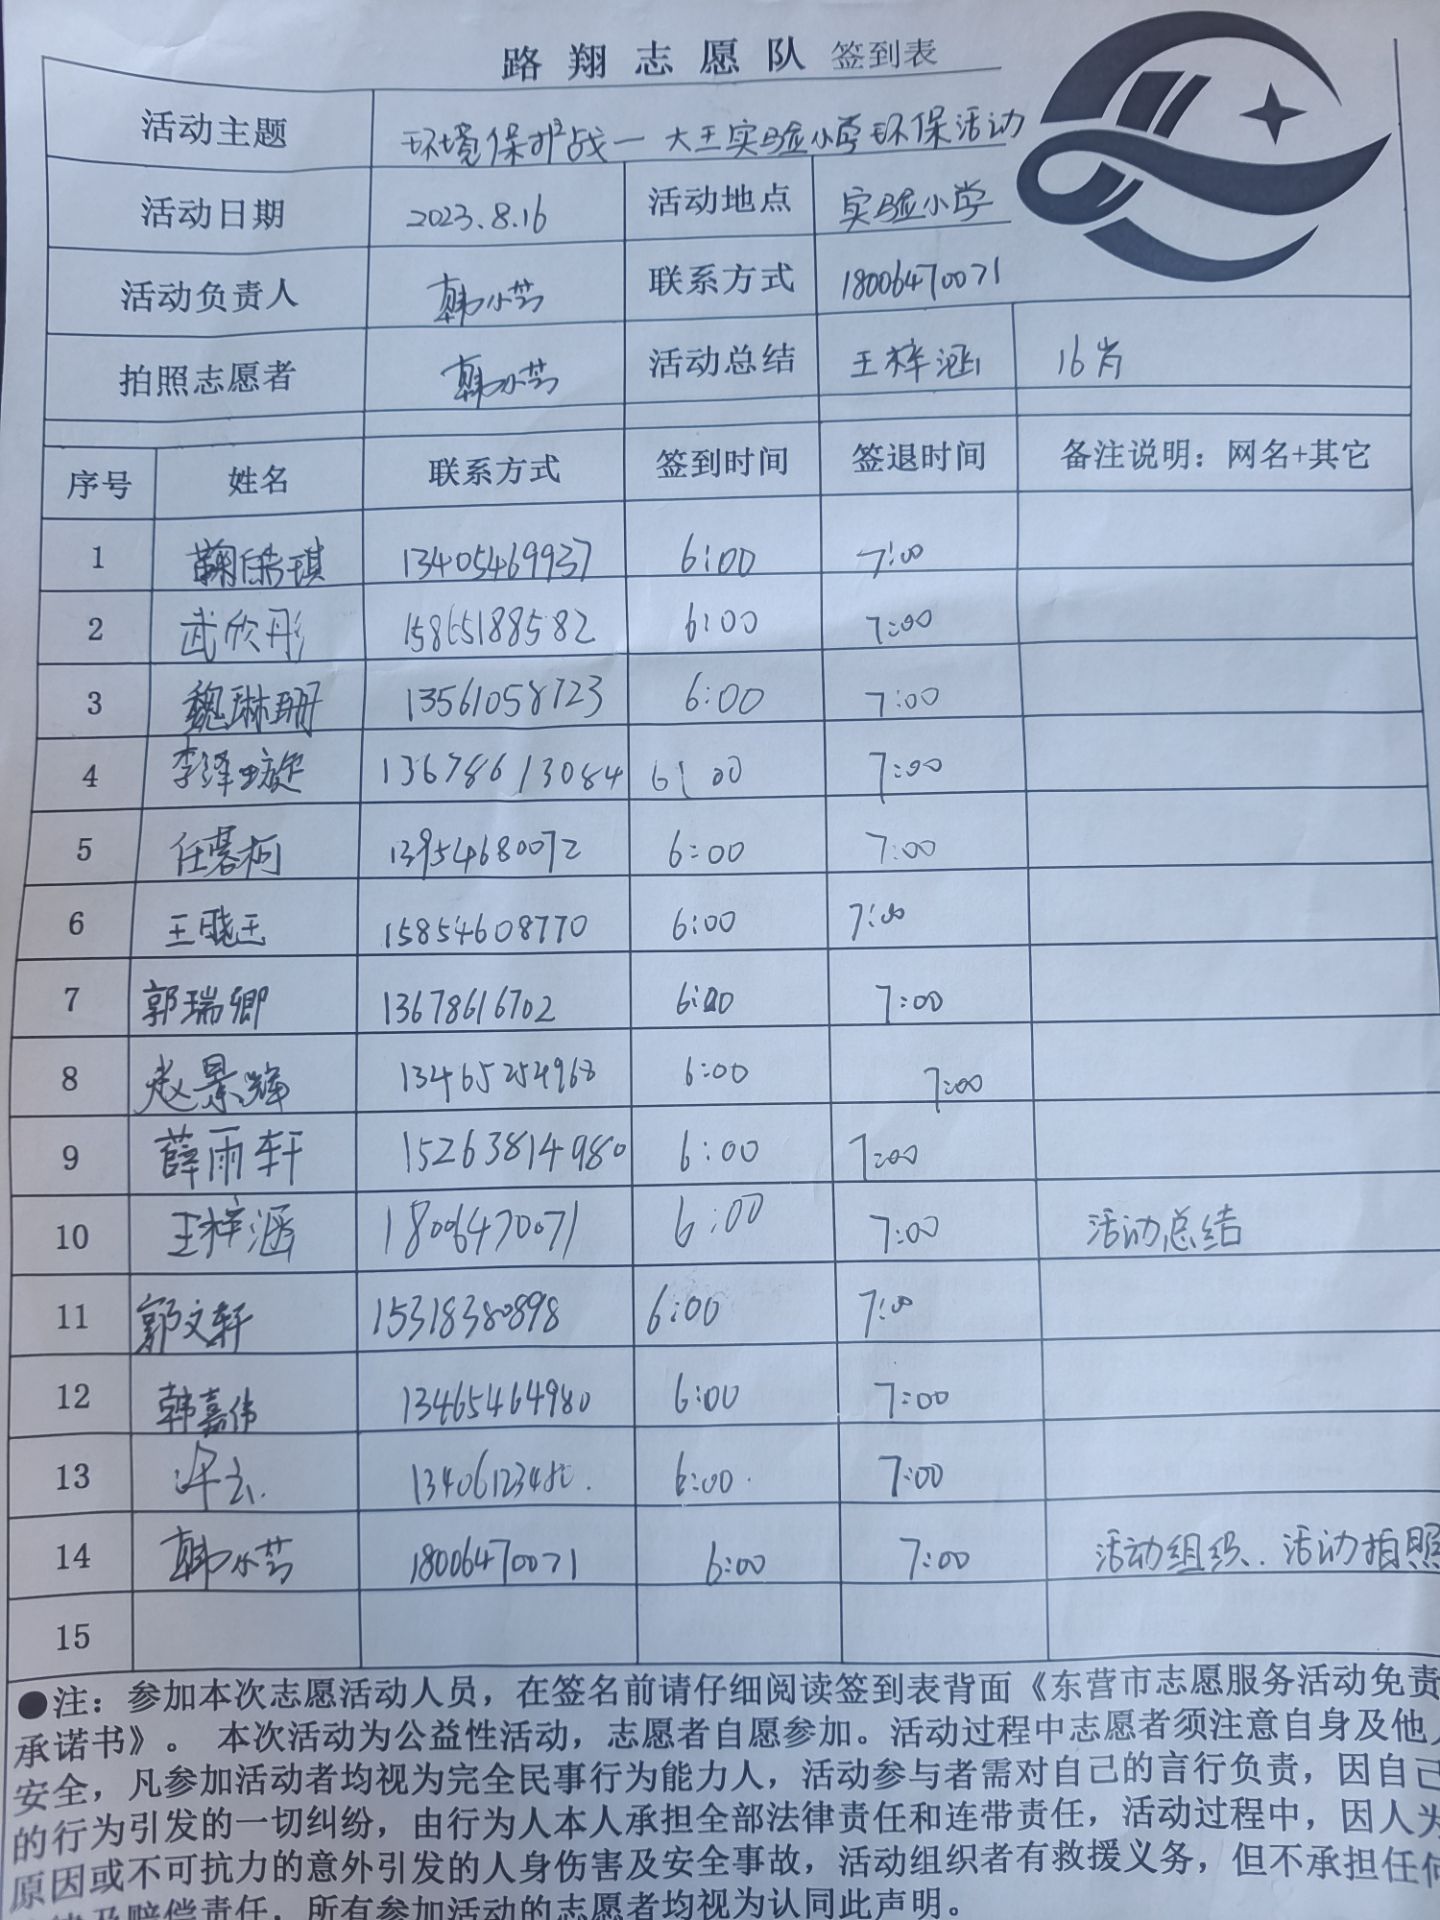 路翔志愿队 签到表
活动主题 环境保护战一大王实验小学环保活动
活动日期 2023.8.16 活动地点 实验小学
活动负责人 韩小芳 联系方式 18006470071
拍照志愿者 韩小芳 活动总结 王梓涵 16岁
序号 姓名 联系方式 签到时间 签退时间 备注说明：网名+其它
1 13405469937 6:00 7:00
2 武欣彤 15865188582 6:00 7:00
3 魏琳珊 13561058723 6:00 7:00
4 李泽璇 13678613084 6:00 7:00
5 13954680072 6:00 7:00
6 王晓玉 15854608770 6:00 7:00
7 郭瑞卿 13678616702 6:00 7:00
8 赵景辉 13465254968 6:00 7:00
9 薛雨轩 15263814980 6:00 7:00
10 王梓涵 18006470071 6:00 7:00 活动总结
11 郭文轩 15318380898 6:00 7:00
12 韩嘉伟 13465464980 6:00 7:00
13 6:00 7:00
14 韩小芳 18006470071 6:00 7:00 活动组织.活动拍照
15
●注：参加本次志愿活动人员，在签名前请仔细阅读签到表背面《东营市志愿服务活动免责
承诺书》。 本次活动为公益性活动，志愿者自愿参加。活动过程中志愿者须注意自身及他人
安全，凡参加活动者均视为完全民事行为能力人，活动参与者需对自己的言行负责，因自己
的行为引发的一切纠纷，由行为人本人承担全部法律责任和连带责任，活动过程中，因人为
原因或不可抗力的意外引发的人身伤害及安全事故，活动组织者有救援义务，但不承担任何
法律及赔偿责任，所有参加活动的志愿者均视为认同此声明。